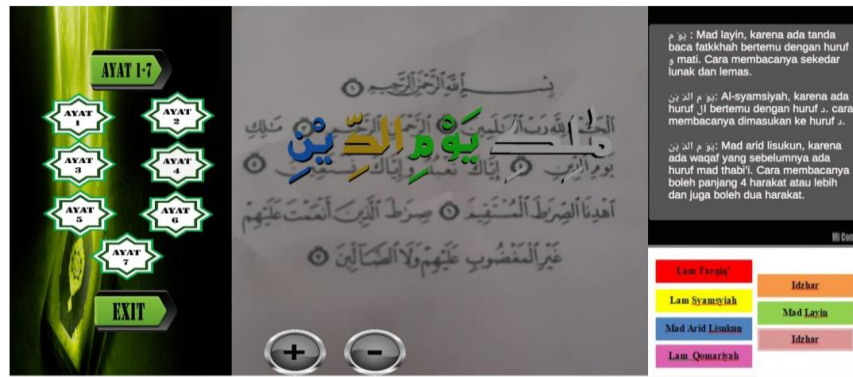 AYAT 1-7
AYAT 1
AYAT 2
AYAT 3
AYAT 4
AYAT 5
AYAT 6
AYAT 7
EXIT
بِسْمِ اللَّهِ الرَّحْمَٰنِ الرَّحِيمِ ١
الْحَمْدُ لِلَّهِ رَبِّ الْعَٰلَمِينَ ٢ الرَّحْمَٰنِ الرَّحِيمِ ٣ مَٰلِكِ
مٰلِكِ يَوْمِ الدِّيْنِ
يَوْمِ الدِّينِ ٤ إِيَّاكَ نَعْبُدُ وَإِيَّاكَ نَسْتَعِينُ ٥
اهْدِنَا الصِّرَٰطَ الْمُسْتَقِيمَ ٦ صِرَٰطَ الَّذِينَ أَنْعَمْتَ عَلَيْهِمْ
غَيْرِ الْمَغْضُوبِ عَلَيْهِمْ وَلَا الضَّالِّينَ ٧
+ -
يَوْ مِ : Mad layin, karena ada tanda
baca fatkkhah bertemu dengan huruf
و mati. Cara membacanya sekedar
lunak dan lemas.
يَوْ مِ الدِّ يْنِ: Al-syamsiyah, karena ada
huruf ال bertemu dengan huruf د. cara
membacanya dimasukan ke huruf د.
يَوْ مِ الدِّ يْنِ: Mad arid lisukun, karena
ada waqaf yang sebelumnya ada
huruf mad thabi'i. Cara membacanya
boleh panjang 4 harakat atau lebih
dan juga boleh dua harakat.
Mi Con
Lam Tarqiq'
Lam Syamsyiah
Mad Arid Lisukun
Lam Qomariyah
Idzhar
Mad Layin
Idzhar